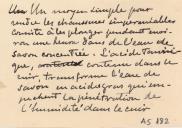 Un moyen simple pour
rendre les chaussures imperméables
consiste à les plonger pendant environ
une heure dans de l'eau de
savon concentrée. L'acide tannique,
contenu dans ce
cuir, transforme l'eau de
savon en acides gras qui em-
pêchent la pénétration de
l'humidité dans le cuir
A5 892